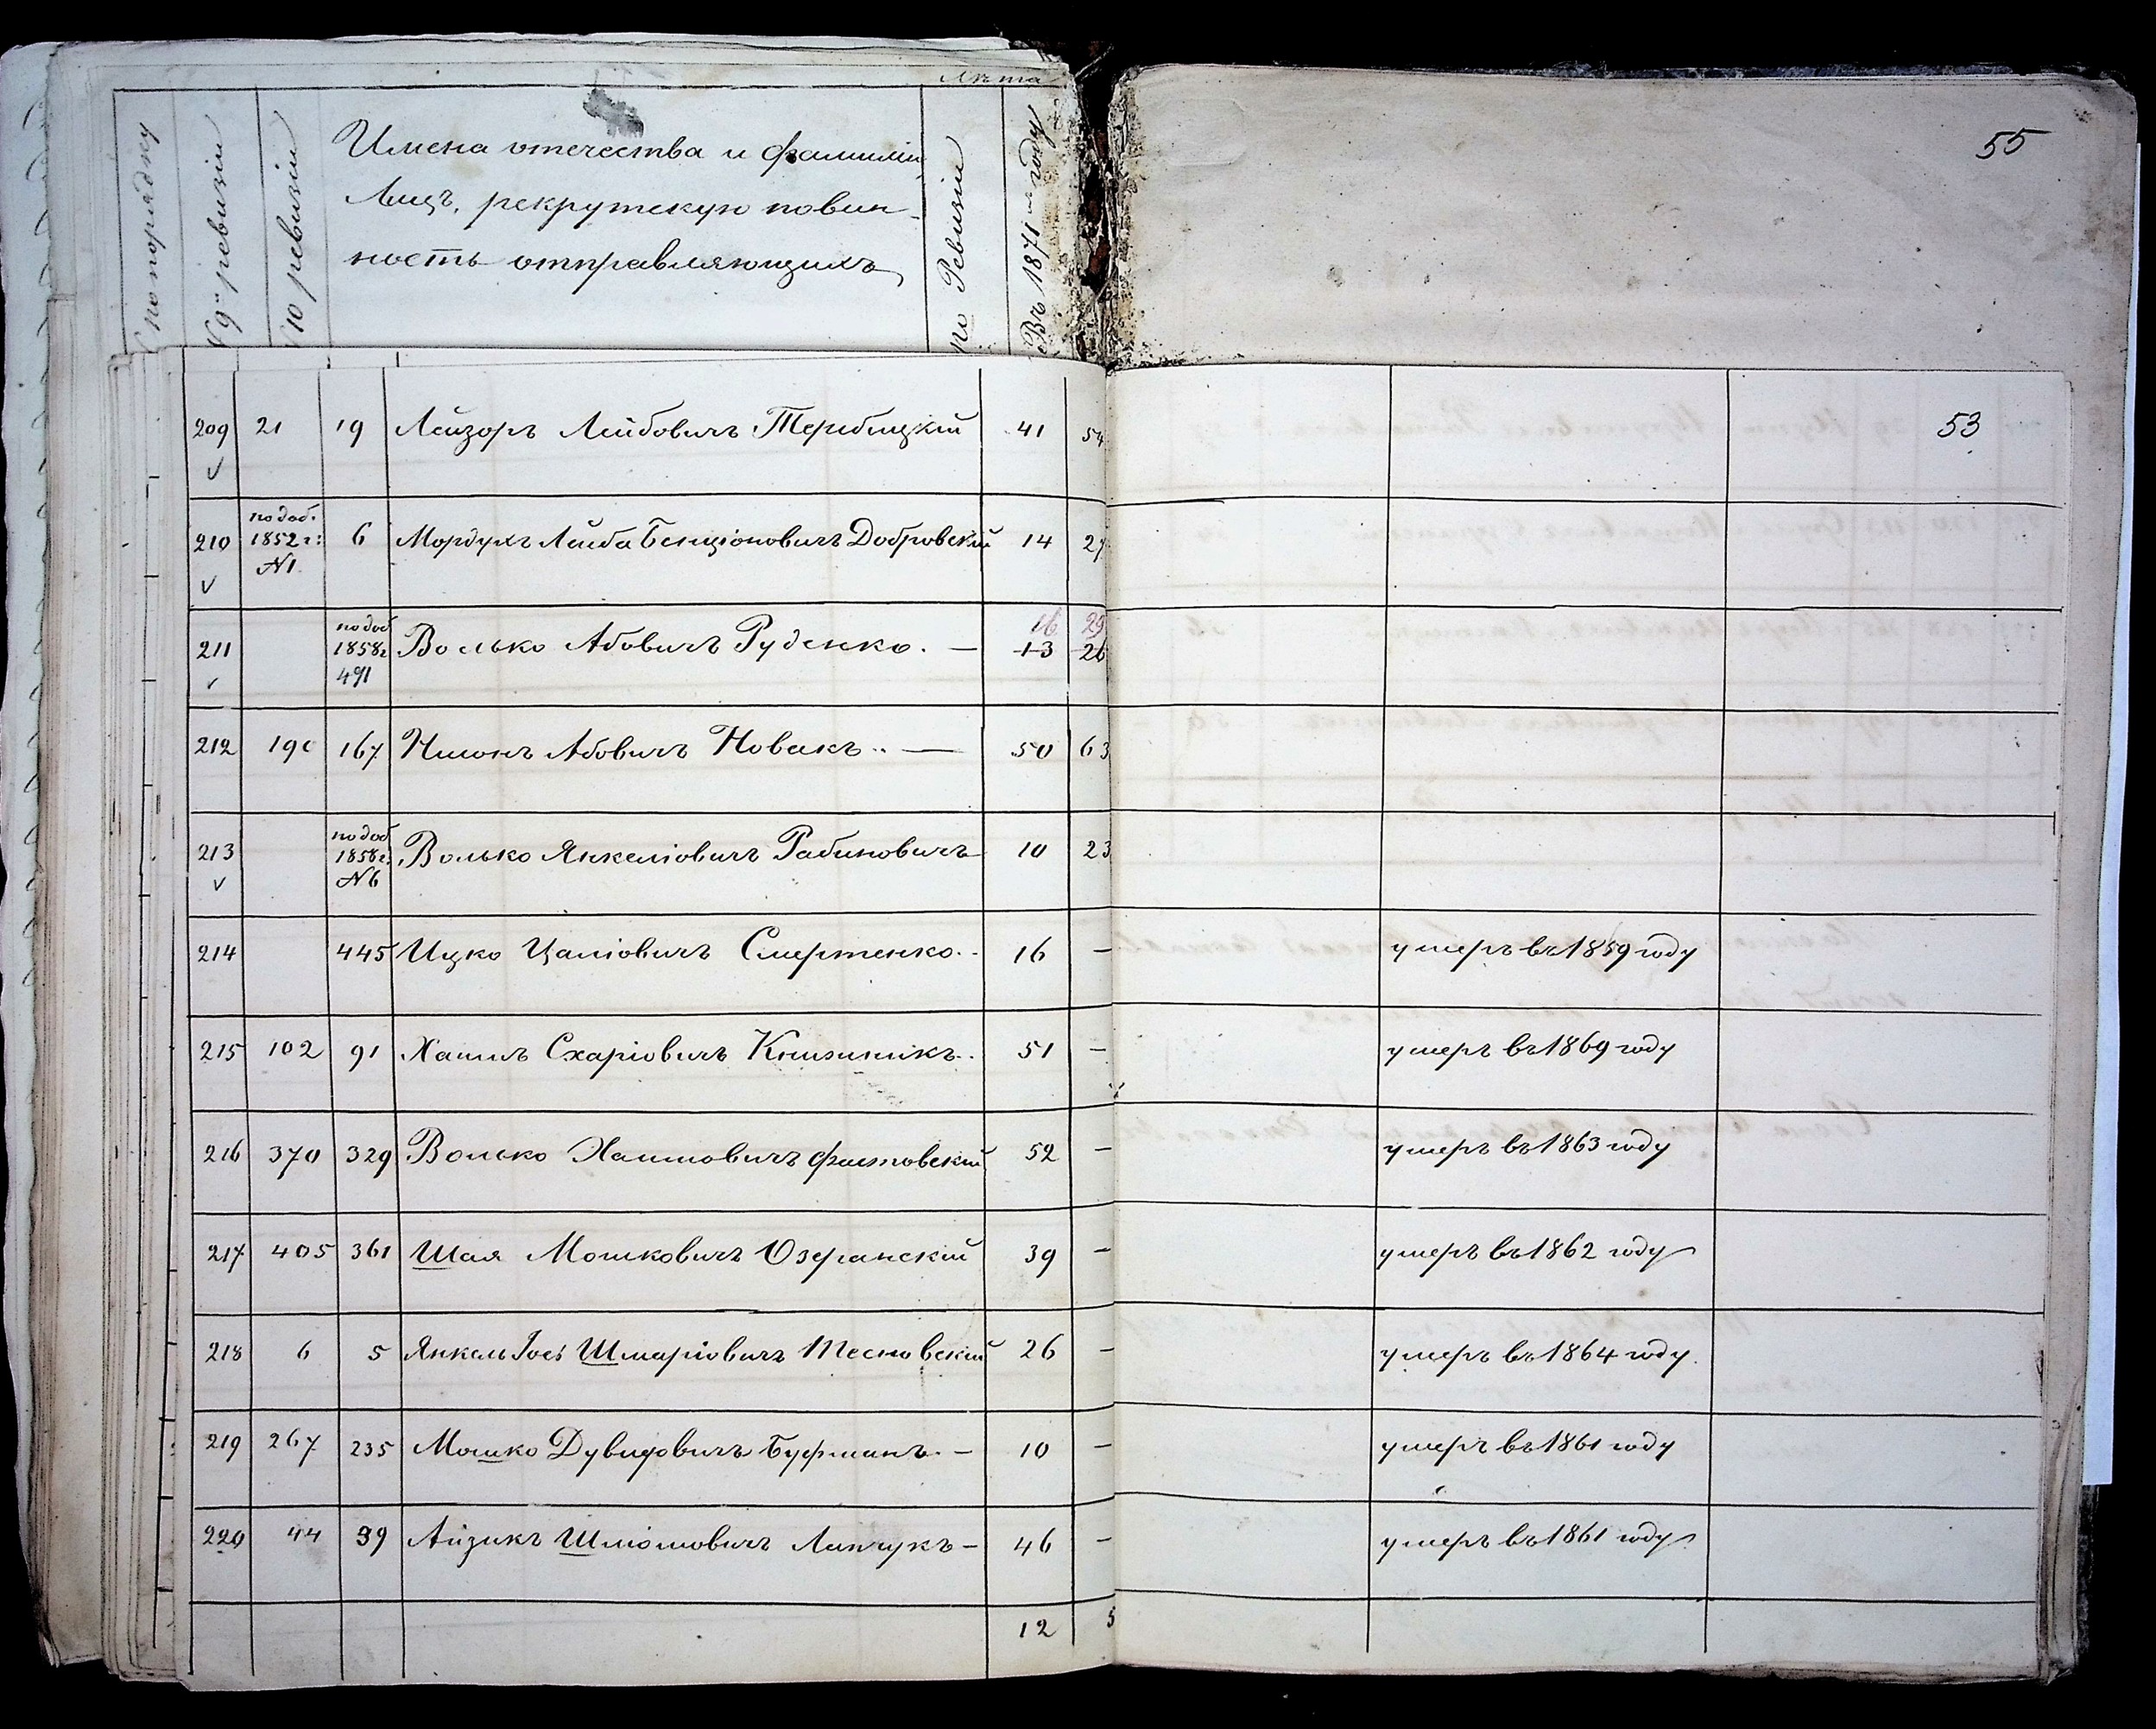 Лѣта
№ по порядку
№ 9й ревизіи
№ 10 ревизіи
Имена отчества и фамиліи
Лицъ, рекрутскую повин-
ность отправляющихъ
по Ревизіи
Въ 1871 м году
55
53
209 21 19 Лейзоръ Лейбовичъ Терлицкій 41 54
210 по доб. 1852 г: №1 6 Мордухъ Лейба Бенціоновичъ Добровскій 14 27
211 по доб 1858 г 491 Волько Абовичъ Руденко. — 16 29
13 26
212 190 167 Абовичъ Новакъ.. — 50 63
213 по доб 1858 г. №6 Волько Янкеліовичъ Рабиновичъ 10 23
214 445 Ицко Цаліовичъ Смертенко.. 16 — умеръ въ 1859 году
215 102 91 Хаимъ Схаріовичъ Книжникъ.. 51 — умеръ въ 1869 году
216 370 329 Волько Хаимовичъ Фастовскій 52 — умеръ въ 1863 году
217 405 361 Шая Мошковичъ Озерянскій 39 — умеръ въ 1862 году
218 6 5 Янкель Іосъ Шмаріовичъ Тесновскій 26 — умеръ въ 1864 году.
219 267 235 Мошко Дувидовичъ Буфманъ. — 10 — умеръ въ 1861 году
220 44 39 Айзикъ Шліомовичъ Линчукъ — 46 — умеръ въ 1861 году
12 5